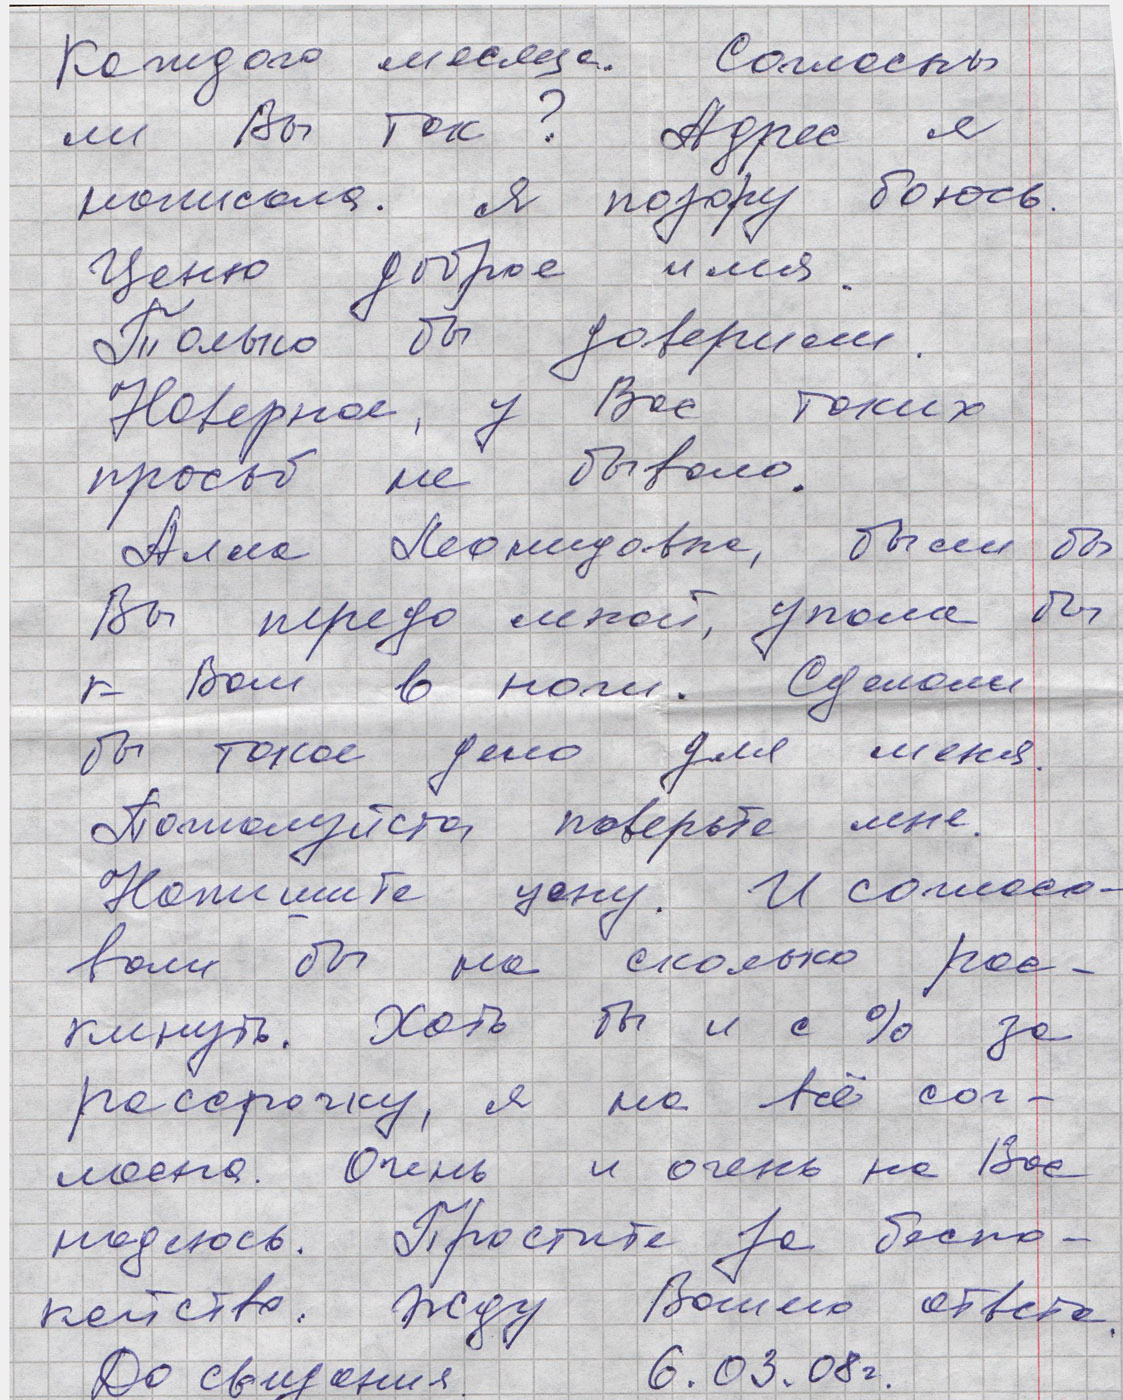 Каждого месяца. Согласны
ли Вы так? Адрес я
написала. Я позору боюсь.
Ценю доброе имя.
Только бы доверили.
Наверное, у Вас таких
просьб не бывало.
Алла Леонидовна, были бы
Вы передо мной, упала бы
к Вам в ноги. Сделали
бы такое дело для меня.
Пожалуйста поверьте мне.
Напишите цену. И согласо-
вали бы на сколько рас-
кинуть. Хоть бы и с % за
рассрочку, я на всё сог-
ласна. Очень и очень на Вас
надеюсь. Простите за беспо-
койство. Жду Вашего ответа.
До свидания 6.03.08г.